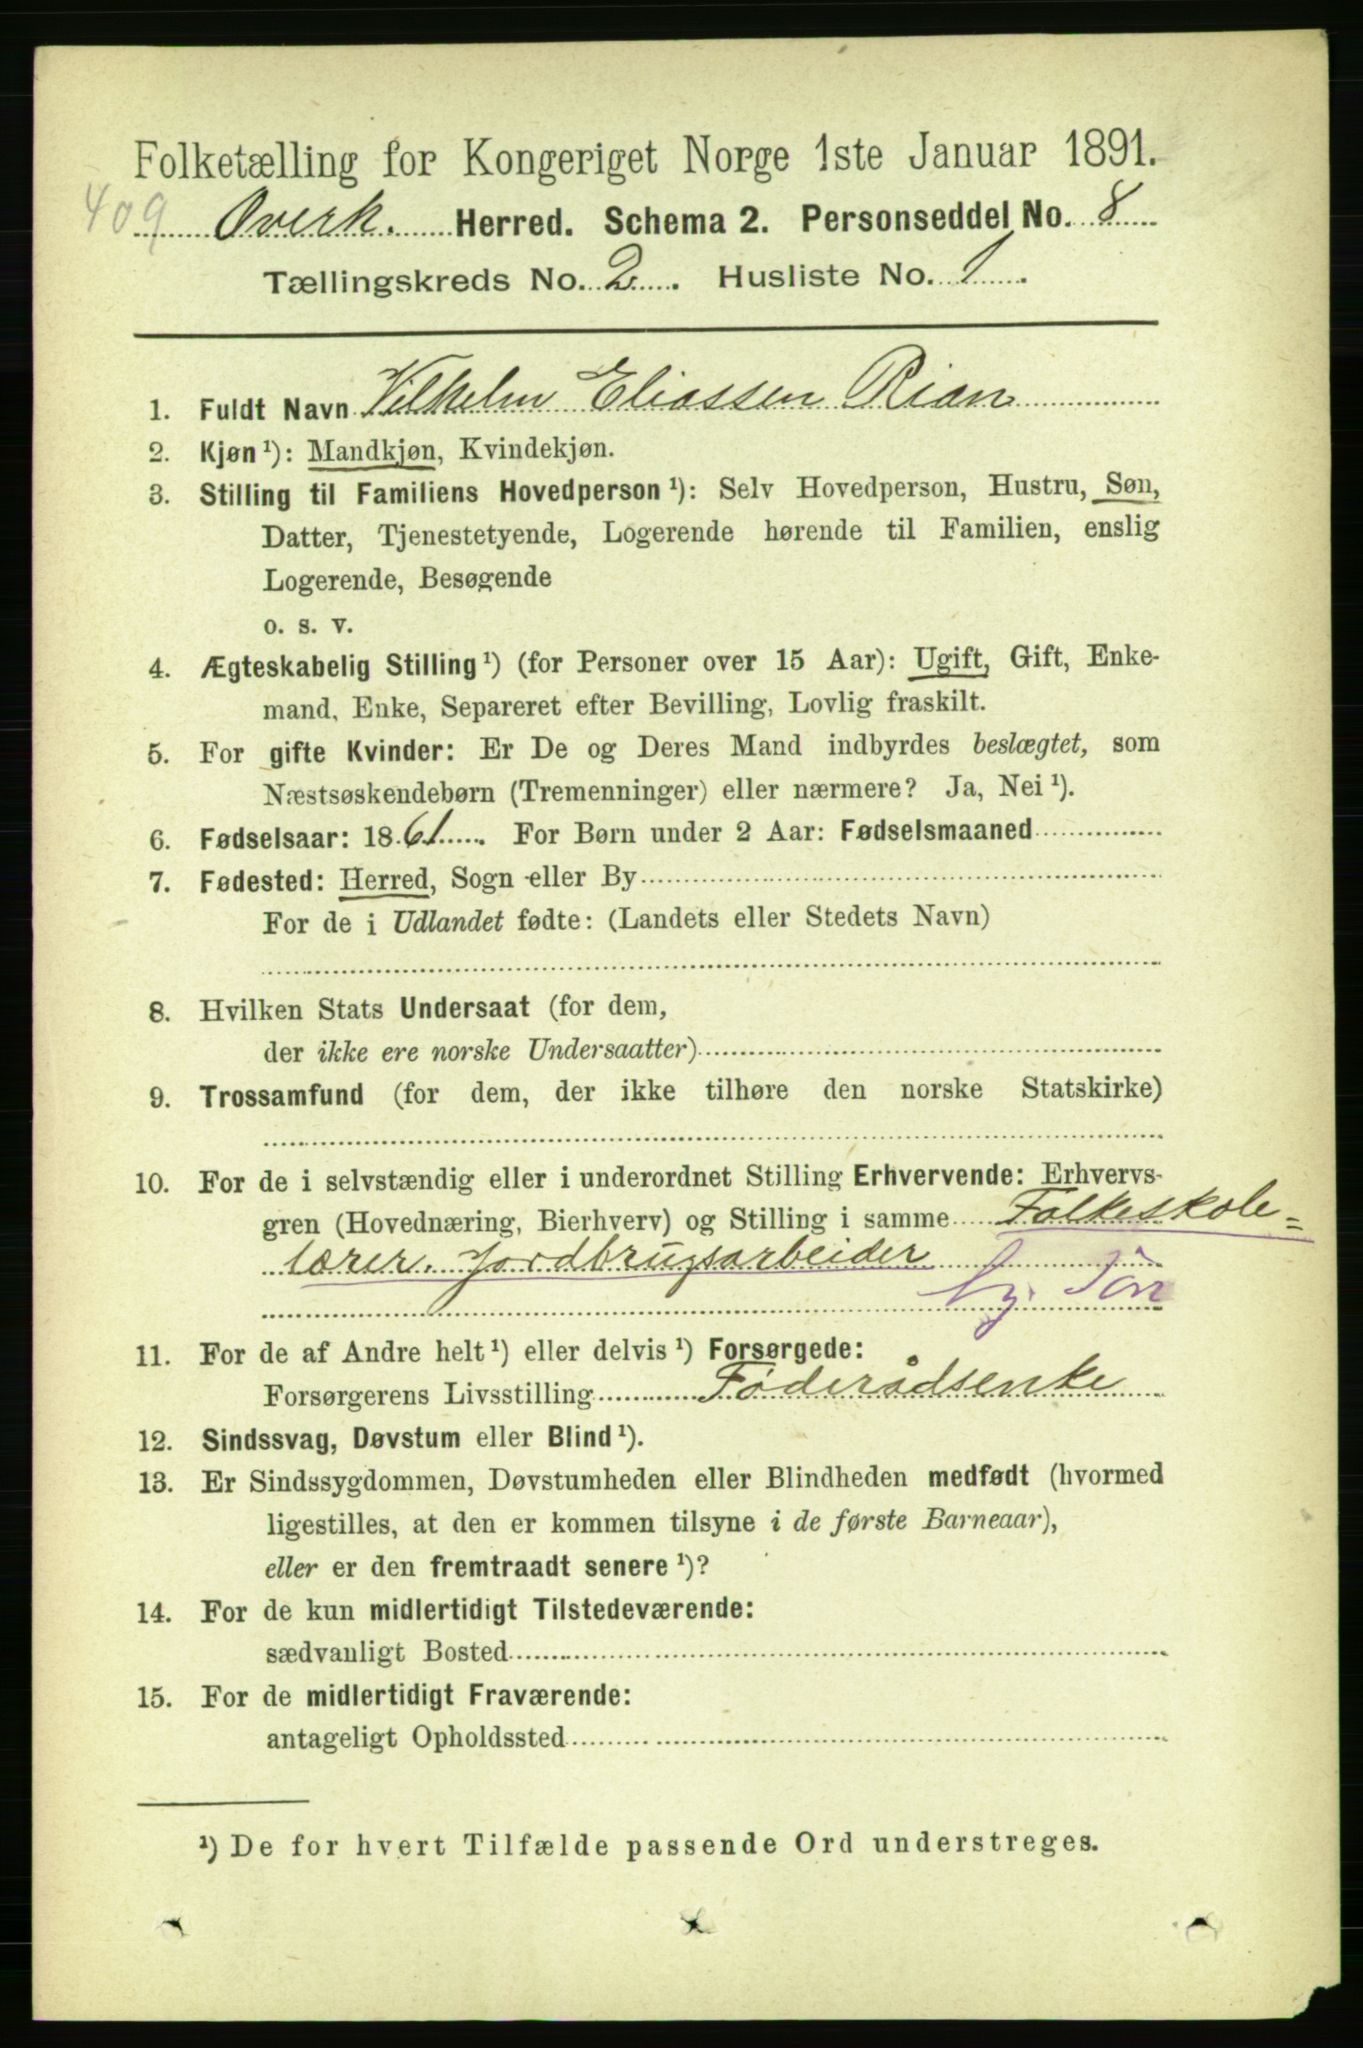 Folketælling for Kongeriget Norge 1ste Januar 1891.
409 Overh. Herred. Schema 2. Personseddel No. 8
Tællingskreds No. 2. Husliste No. 1.
1. Fuldt Navn Vilhelm Eliassen Rian
2. Kjøn ¹): Mandkjøn, Kvindekjøn.
3. Stilling til Familiens Hovedperson ¹): Selv Hovedperson, Hustru, Søn,
Datter, Tjenestetyende, Logerende hørende til Familien, enslig
Logerende, Besøgende
o. s. v.
4. Ægteskabelig Stilling ¹) (for Personer over 15 Aar): Ugift, Gift, Enke-
mand, Enke, Separeret efter Bevilling, Lovlig fraskilt.
5. For gifte Kvinder: Er De og Deres Mand indbyrdes beslægtet, som
Næstsøskendebørn (Tremenninger) eller nærmere? Ja, Nei ¹).
6. Fødselsaar: 1861. For Børn under 2 Aar: Fødselsmaaned
7. Fødested: Herred, Sogn eller By
For de i Udlandet fødte: (Landets eller Stedets Navn)
8. Hvilken Stats Undersaat (for dem,
der ikke ere norske Undersaatter)
9. Trossamfund (for dem, der ikke tilhøre den norske Statskirke)
10. For de i selvstændig eller i underordnet Stilling Erhvervende: Erhvervs-
gren (Hovednæring, Bierhverv) og Stilling i samme Folkeskole=
lærer. Jordbrugsarbeider
Søn
11. For de af Andre helt ¹) eller delvis ¹) Forsørgede:
Forsørgerens Livsstilling Føderådsenke
12. Sindssvag, Døvstum eller Blind ¹).
13. Er Sindssygdommen, Døvstumheden eller Blindheden medfødt (hvormed
ligestilles, at den er kommen tilsyne i de første Barneaar),
eller er den fremtraadt senere ¹)?
14. For de kun midlertidigt Tilstedeværende:
sædvanligt Bosted
15. For de midlertidigt Fraværende:
antageligt Opholdssted
¹) De for hvert Tilfælde passende Ord understreges.